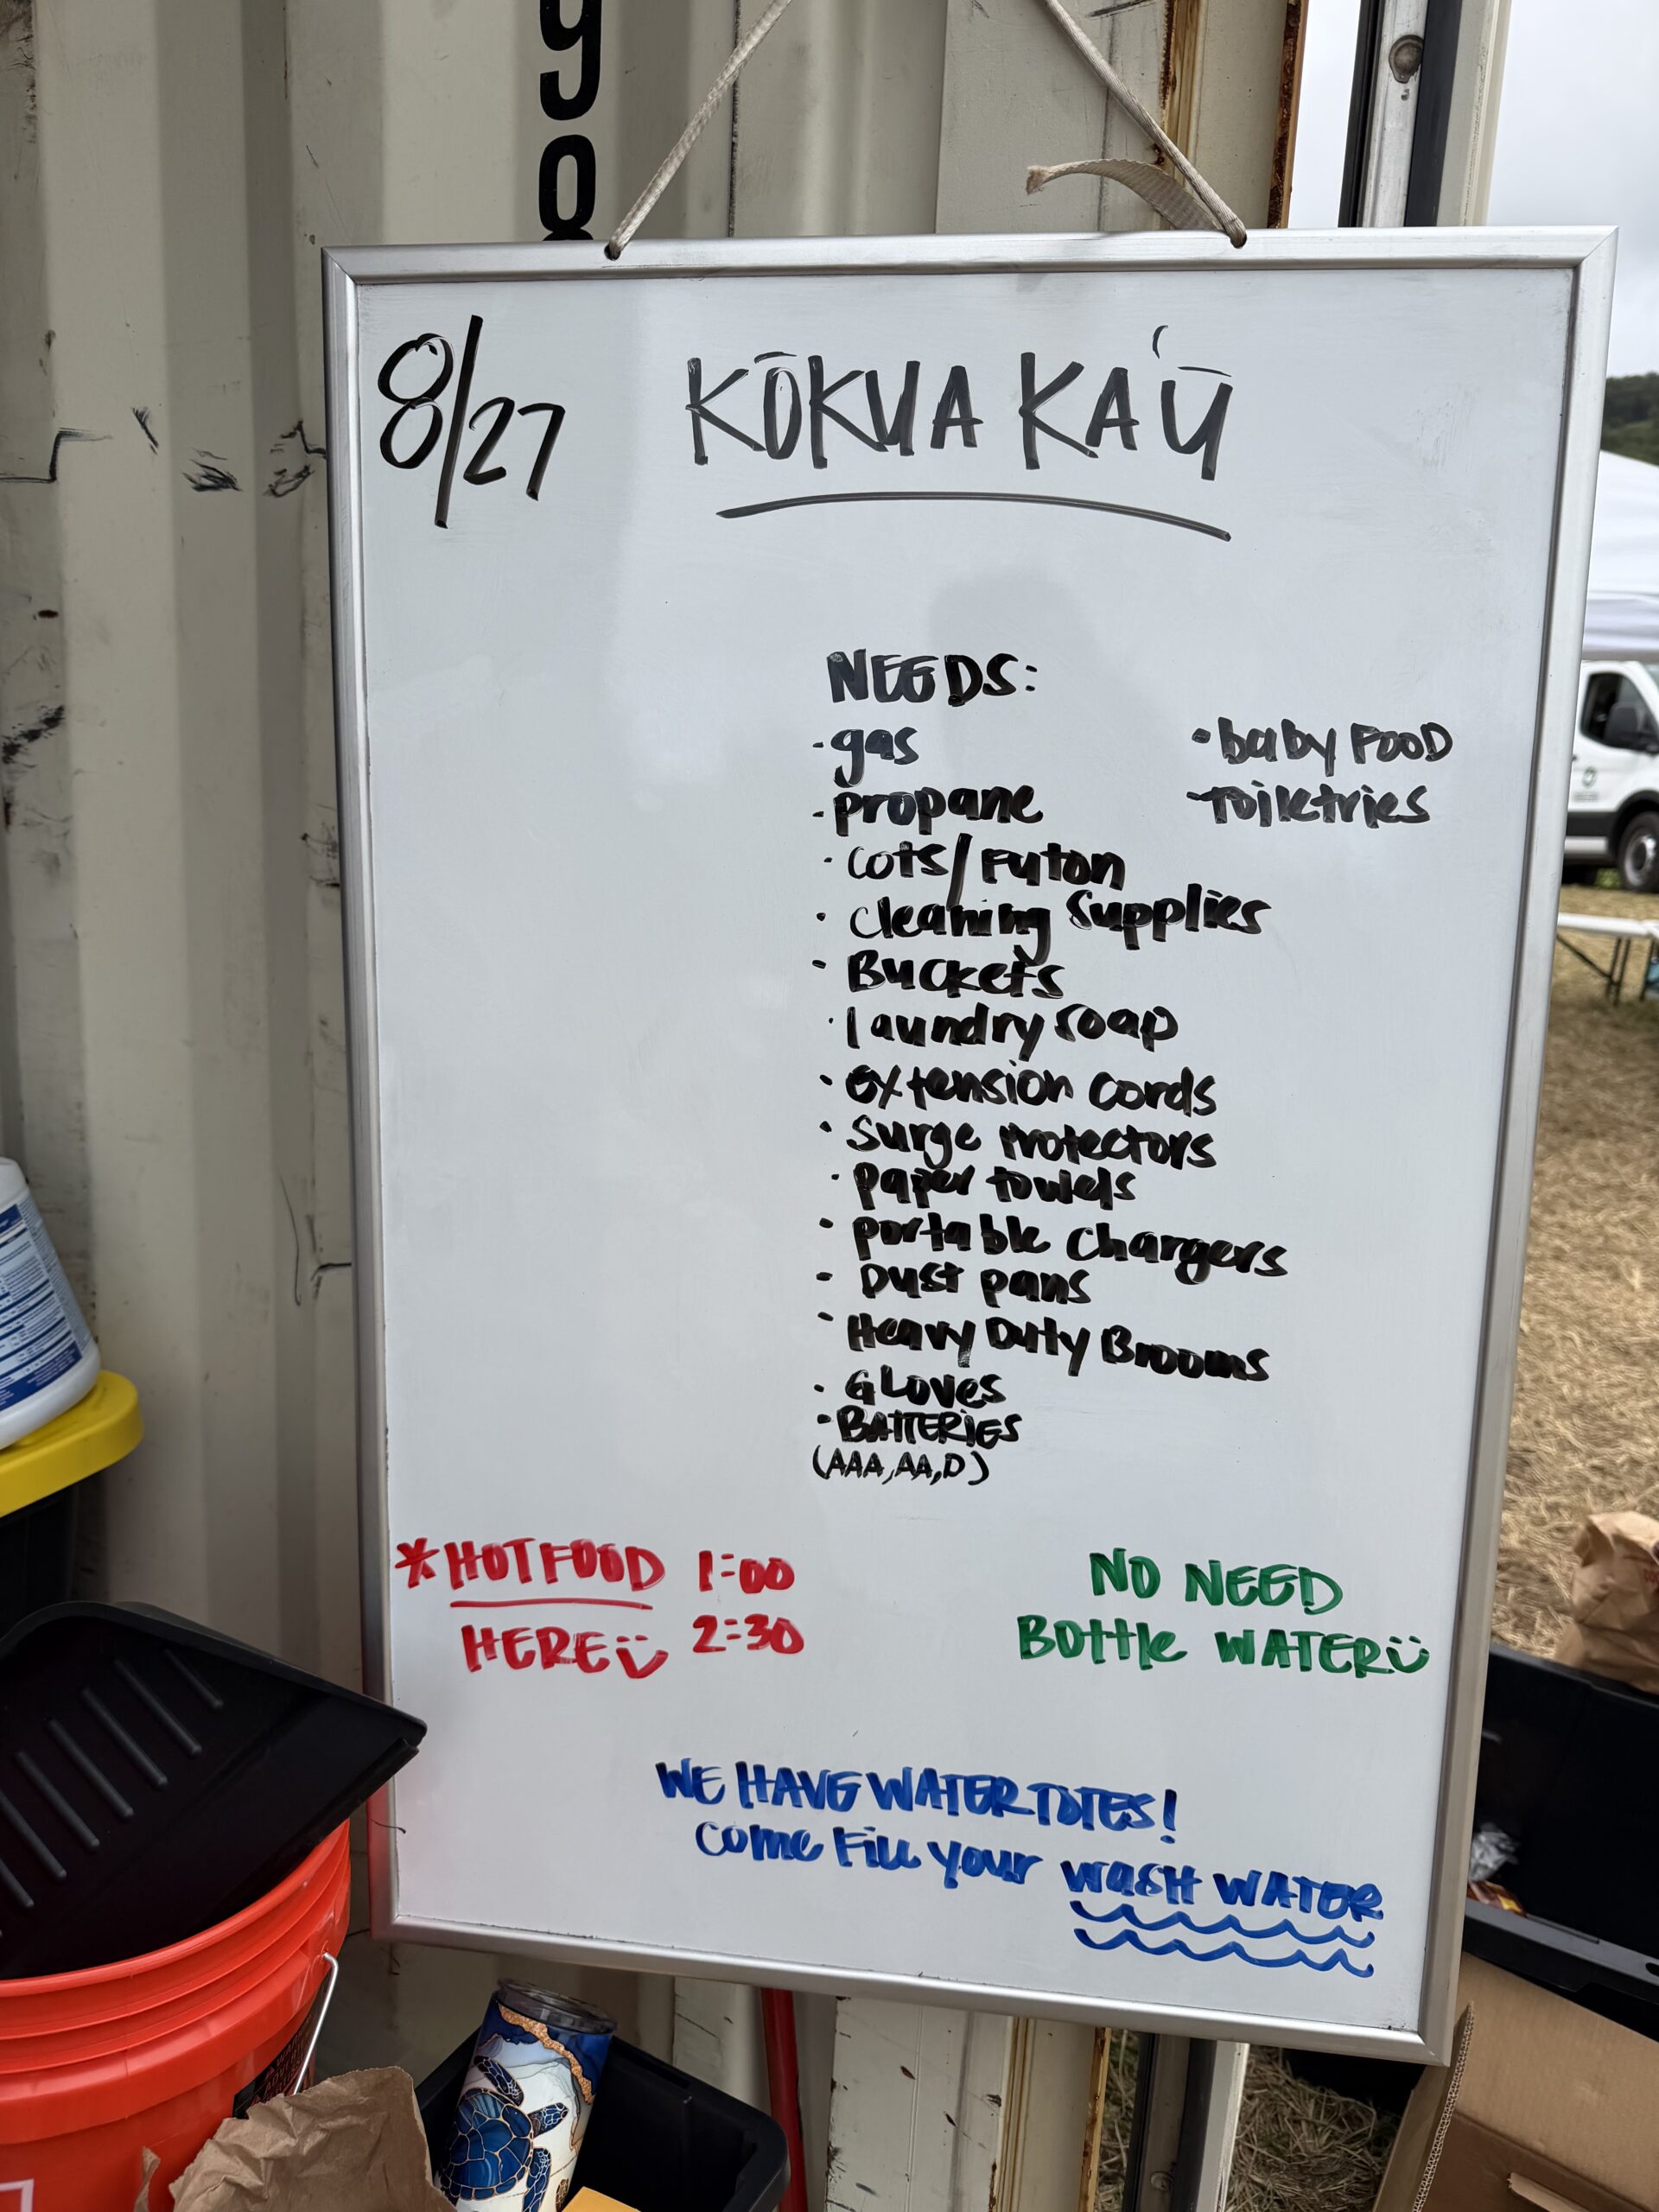 98
8/27
KŌKUA KA'Ū
NEEDS:
· gas
· propane
· cots/Futon
· cleaning supplies
· Buckets
· laundry soap
· extension cords
· surge protectors
· paper towels
· portable chargers
· Dust pans
· Heavy Duty Brooms
· GLOVES
· BATTERIES
(AAA, AA, D)
· baby FOOD
· Toiletries
* HOT FOOD 1:00
HERE 2:30
NO NEED
Bottle WATER
WE HAVE WATER TOTES!
come Fill your WASH WATER